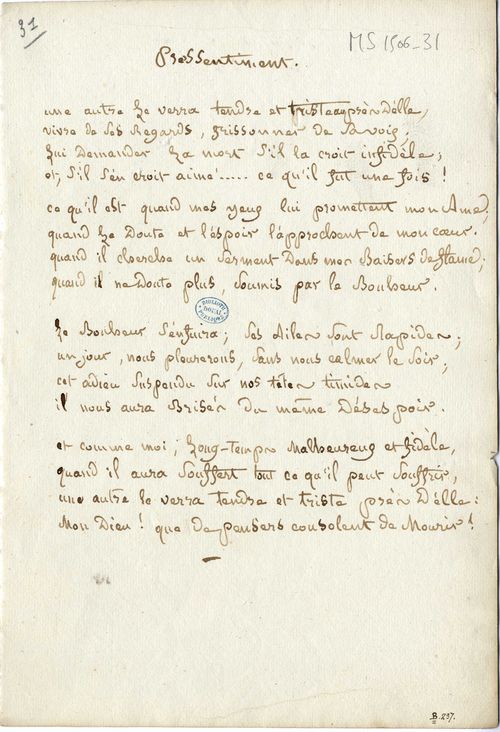 31
MS 1506-31
Pressentiment.
une autre le verra tendre et triste auprès d'élle,
vivre de ses Regards, frissonner de sa voix;
lui Demander la mort s'il la croit infidéle;
et, s'il s'én croit aimé..... ce qu'il fut une fois!
ce qu'il est quand mes yeux lui promettent mon Ame,
quand le Doute et l'éspoir l'approchent de mon cœur.
quand il cherche un Serment Dans mes Baisers de flame;
quand il ne Doute plus, soumis par le Bonheur.
le Bonheur s'enfuira; ses Ailes sont Rapides;
un jour, nous pleurerons, sans nous calmer le soir;
cet adieu suspendu sur nos têtes timides
il nous aura Brisés Du même Désespoir.
et comme moi, long-temps Malheureux et fidèle,
quand il aura souffert tout ce qu'il peut souffrir,
une autre le verra tendre et triste près D'élle:
Mon Dieu! que de pensers consolent de Mourir!
B. 237.